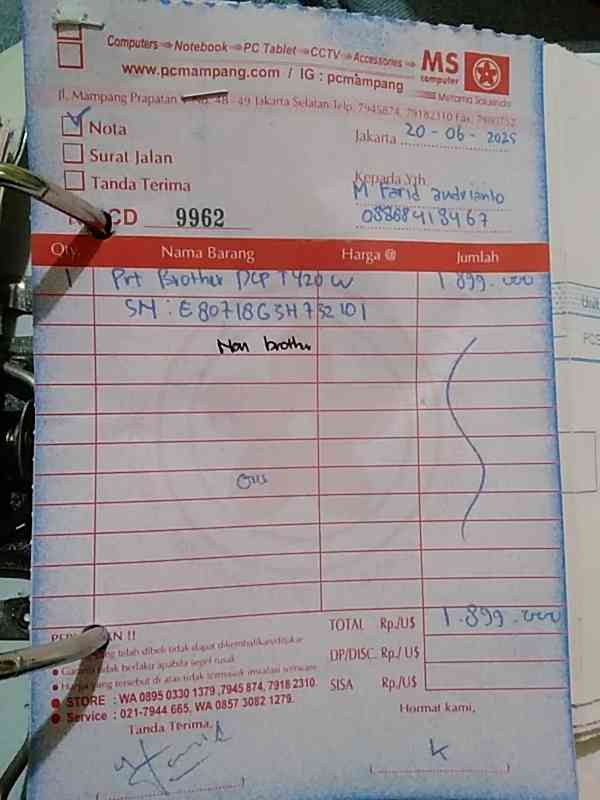 Computers Notebook PC Tablet CCTV Accessories
MS
computer
www.pcmampang.com / IG : pcmampang
Metama Solusindo
Jl. Mampang Prapatan No. 48 - 49 Jakarta Selatan Telp. 7945874, 79182310 Fax.
Nota
Jakarta 20-06-2025
Surat Jalan
Tanda Terima
Kepada Yth.
M Farid andrianto
CD 9962
08868418467
Qty. Nama Barang Harga @ Jumlah
1 Prt Brother DCP T420W 1.899.000
SN : E80718G3H732101
Non brother
TOTAL Rp./U$ 1.899.000
PERHATIAN !!
yang telah dibeli tidak dapat dikembalikan/ditukar
Garansi tidak berlaku apabila segel rusak
DP/DISC. Rp./ U$
Harga yang tersebut di atas tidak termasuk instalasi software
SISA Rp./U$
STORE : WA 0895 0330 1379 ,7945 874, 7918 2310.
Service : 021-7944 665, WA 0857 3082 1279.
Tanda Terima,
Hormat kami,